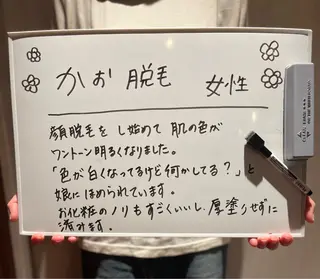 かお 脱毛 女性
顔脱毛を し始めて 肌の色が
ワントーン明るくなりました。
「色が白くなってるけど何かしてる?」と
娘にほめられています。
お化粧のノリもすごくいいし、厚塗りせずに
済みます。